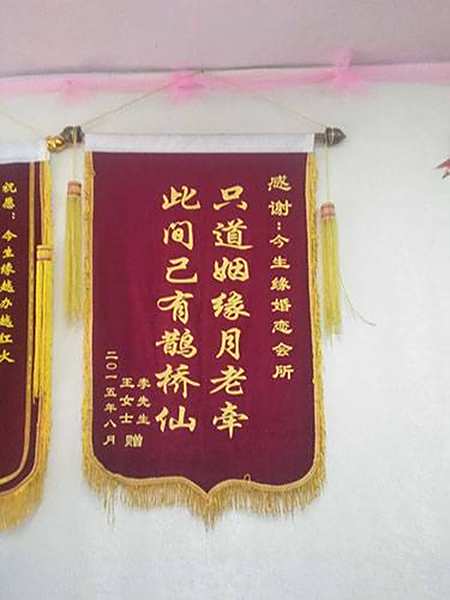 感谢：今生缘婚恋会所
只道姻缘月老牵
此间已有鹊桥仙
李先生
王女士 赠
二〇一五年八月
祝愿：今生缘越办越红火